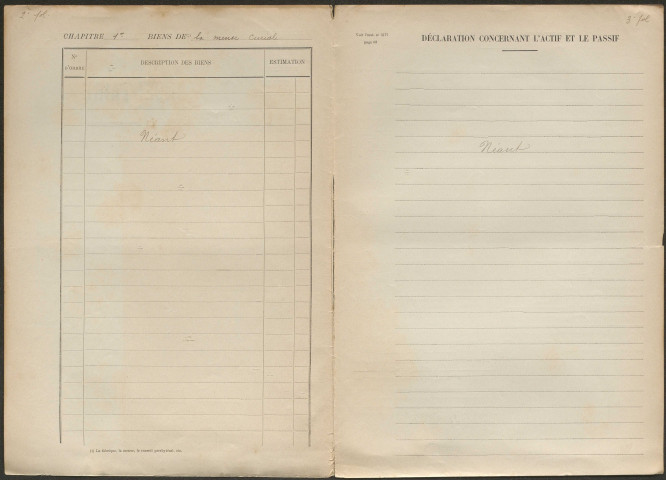 2e fol
CHAPITRE 1er BIENS DE la mense Curiale
No D'ORDRE
DESCRIPTION DES BIENS
ESTIMATION
Néant
(1) La fabrique, la mense, le conseil presbytéral, etc.
3 fol
DÉCLARATION CONCERNANT L'ACTIF ET LE PASSIF
Néant